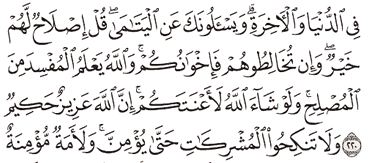 فِى الدُّنْيَا وَالْأَخِرَةِ ۗ وَيَسْـَٔلُونَكَ عَنِ الْيَتَامَىٰ ۖ قُلْ إِصْلَاحٌ لَّهُمْ
خَيْرٌ ۖ وَإِن تُخَالِطُوهُمْ فَإِخْوَانُكُمْ ۚ وَاللَّهُ يَعْلَمُ الْمُفْسِدَ مِنَ
الْمُصْلِحِ ۚ وَلَوْ شَآءَ اللَّهُ لَأَعْنَتَكُمْ ۚ إِنَّ اللَّهَ عَزِيزٌ حَكِيمٌ
٢٢٠ وَلَا تَنكِحُوا الْمُشْرِكَاتِ حَتَّىٰ يُؤْمِنَّ ۚ وَلَأَمَةٌ مُّؤْمِنَةٌ